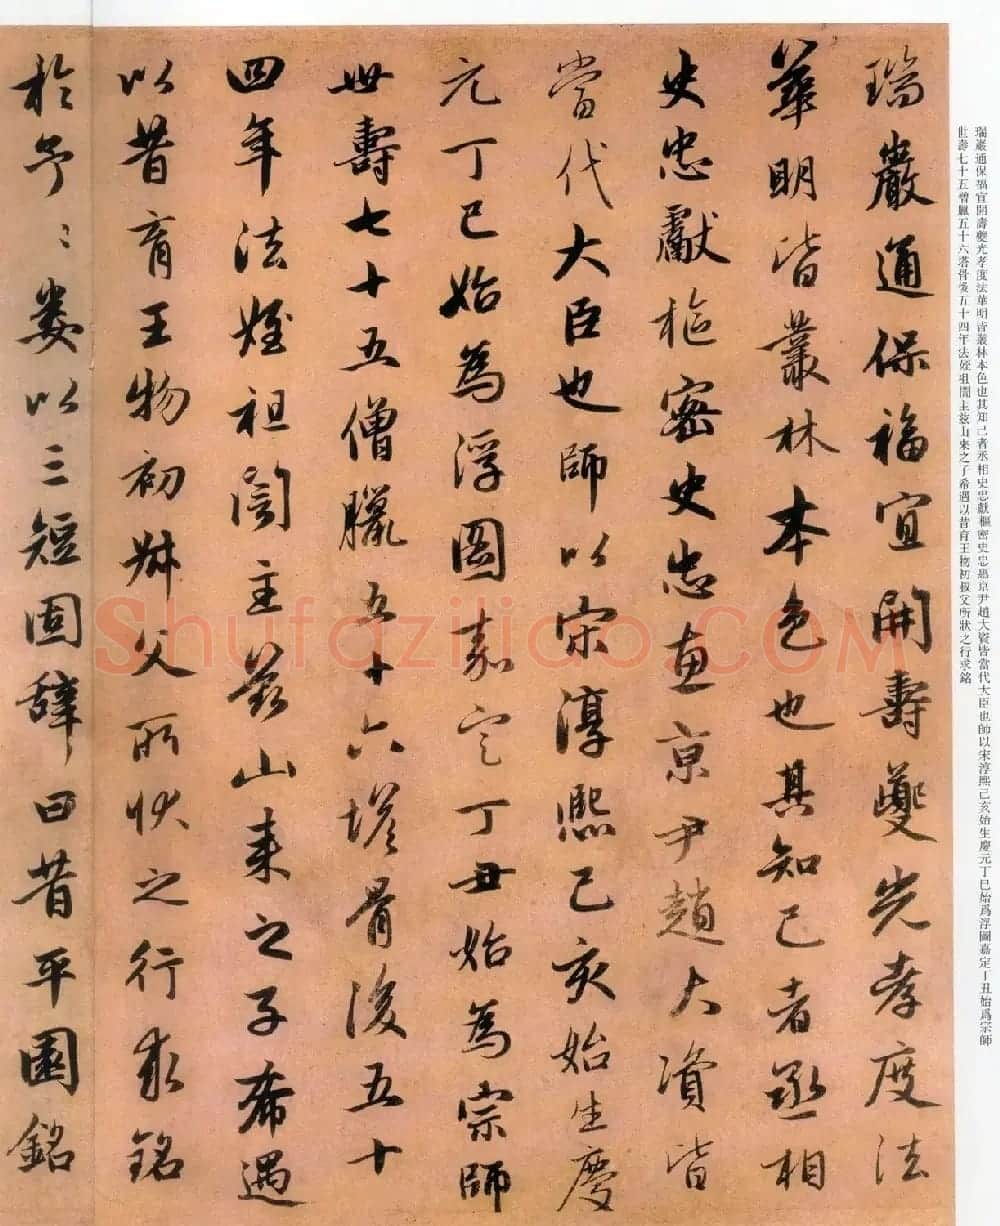 瑞巖通保福宣開壽夔光孝度法華明皆叢林本色也其知己者丞相史忠獻樞密史忠愚京尹趙大資皆當代大臣也師以宋淳熙己亥始生慶元丁巳始爲浮圖嘉定丁丑始爲宗師
世壽七十五曾臘五十六塔骨後五十四年法姪祖誾主兹山來之子希遇以昔育王物初叔父所狀之行求銘
瑞巖通保福宜開壽夔光孝度法
華明皆叢林本色也其知己者丞相
史忠獻樞密史忠惠京尹趙大資皆
當代大臣也師以宋淳熙己亥始生慶
元丁巳始為浮圖嘉定丁丑始為宗師
世壽七十五僧臘五十六塔骨後五十
四年法姪祖誾主茲山来之子希遇
以昔育王物初叔父所狀之行求銘
於予〻娄以三短固辭曰昔平園銘
Shufaziliao.COM